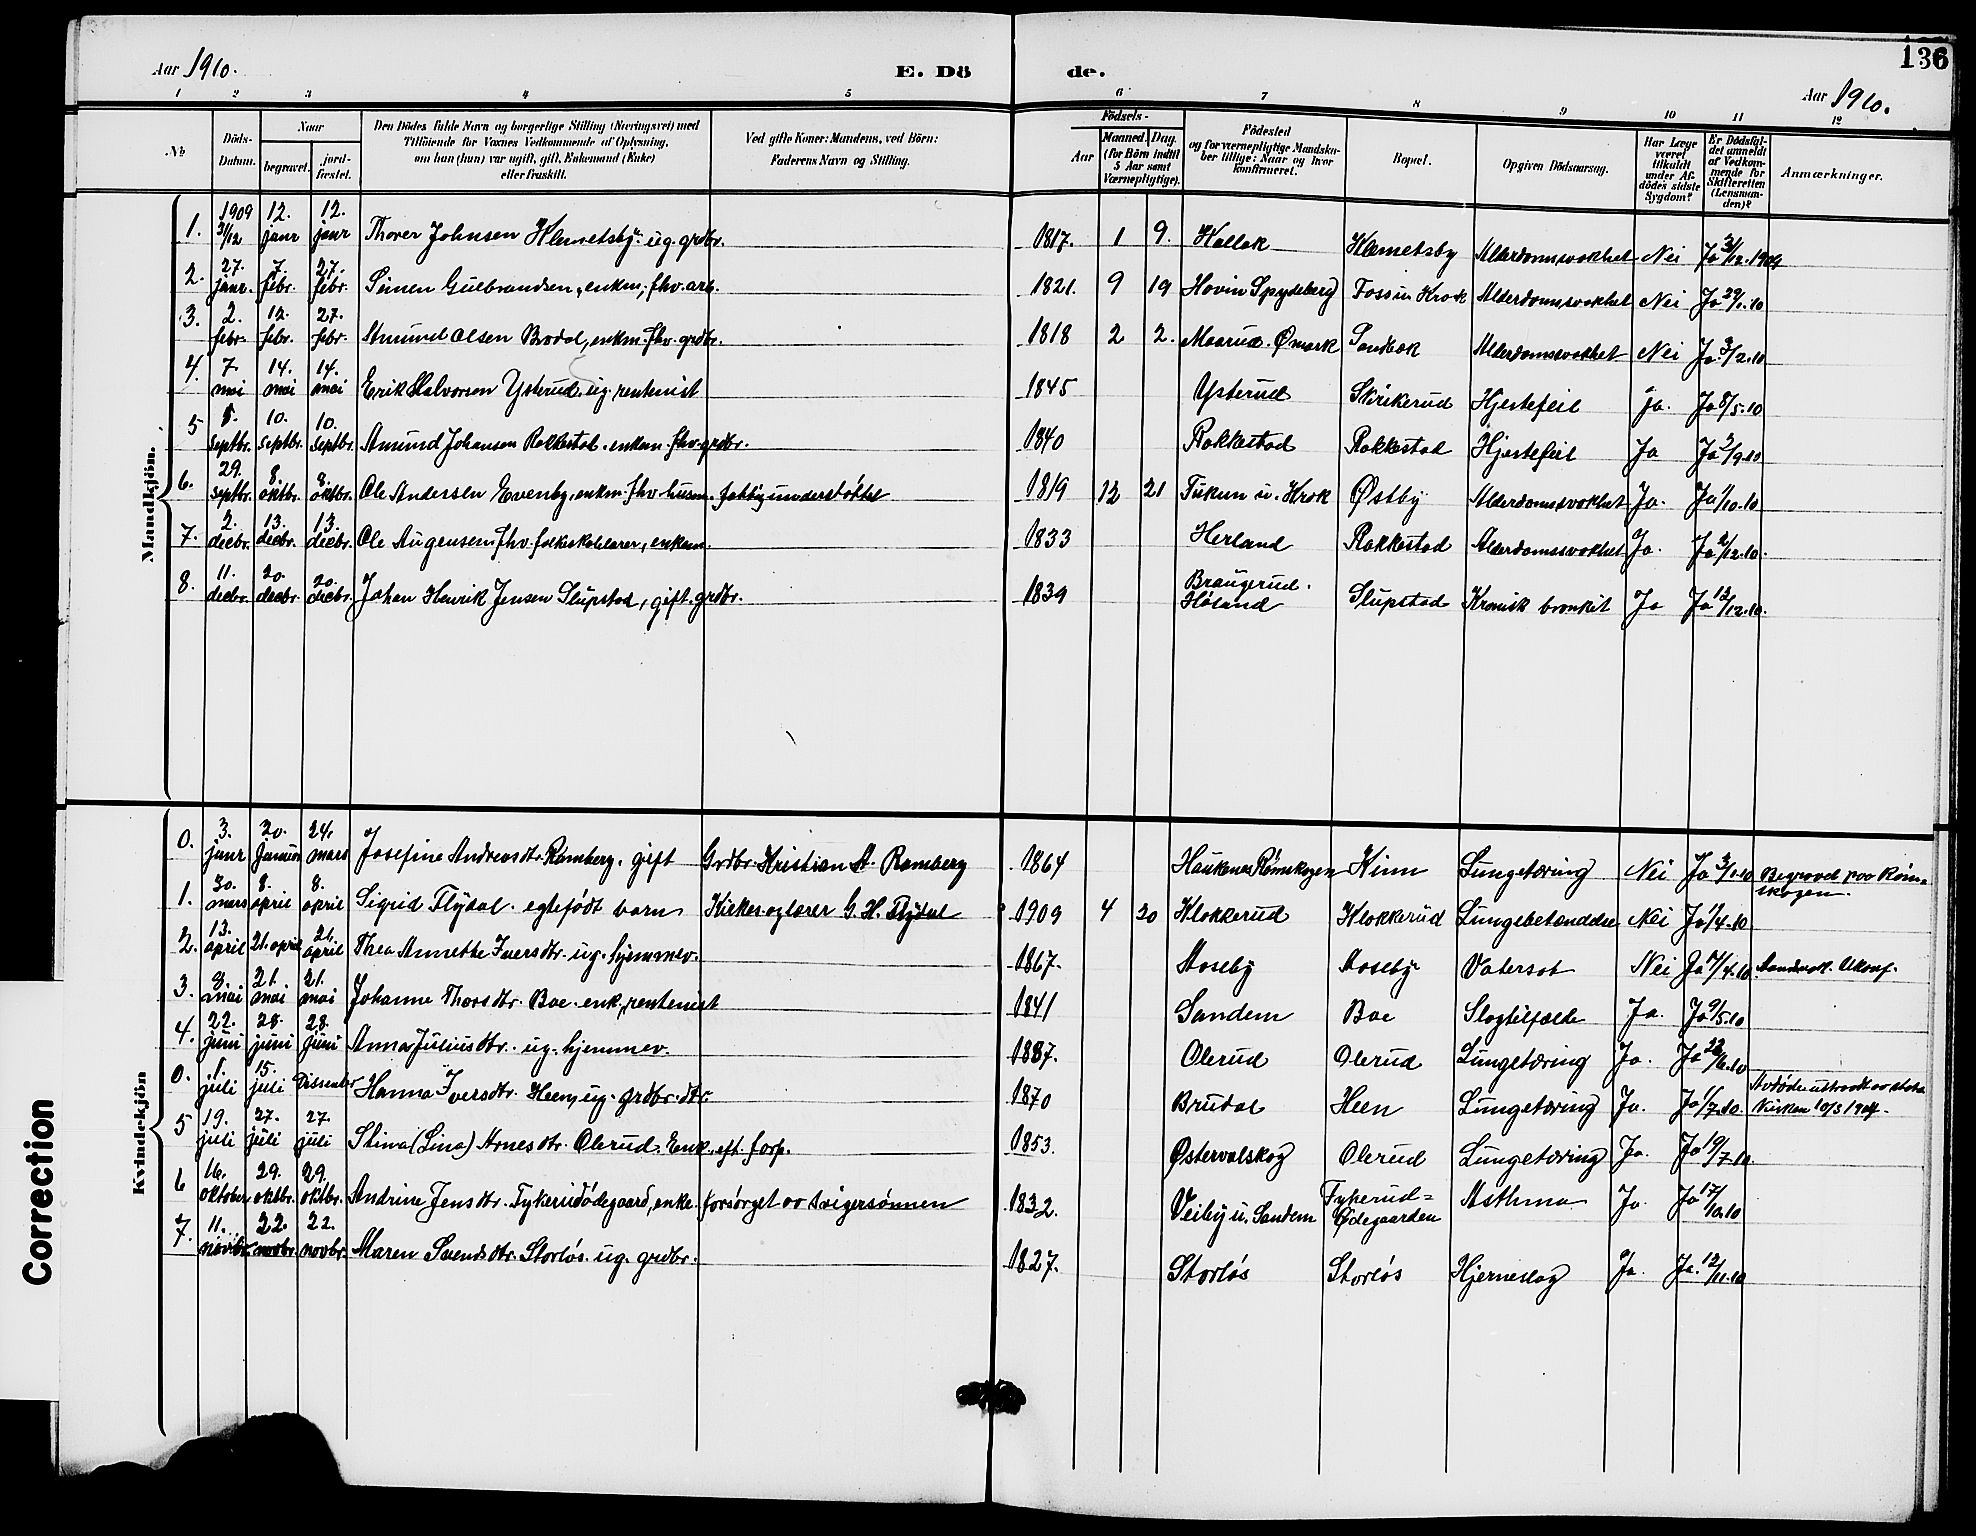 136
Aar 1910. E. Dö de. Aar 1910.
1 2 3 4 5 6 7 8 9 10 11 12
No
Döds-
Datum.
Naar
begravet.
jord-
fæstet.
Den Dödes fulde Navn og borgerlige Stilling (Næringsvei) med
Tilföiende for Voxnes Vedkommende af Oplysning,
om han (hun) var ugift, gift, Enkemand (Enke)
eller fraskilt.
Ved gifte Koner: Mandens, ved Börn:
Faderens Navn og Stilling.
Födsels-
Aar
Maaned. Dag.
(for Börn indtil
5 Aar samt
Værnepligtige).
Födested
og for værnepligtige Mandska-
ber tillige: Naar og hvor
konfirmeret.
Bopæl.
Opgiven Dödsaarsag.
Har Læge
været
tilkaldt
under Af-
dödes sidste
Sygdom?
Er Dödsfal-
det anmeldt
af Vedkom-
mende for
Skifteretten
(Lensman-
den)?
Anmærkninger.
Mandkjön.
1. 1909 31/12 12. janr 12. janr Thorer Johnsen Hemetsby. ug. grdbr. 1817. 1 9. Kollak Hemetsby Alderdomssvakhet Nei Ja 31/12.1909
2. 27. janr. 7. febr. 27. febr. Simen Gulbrandsen, enkm., fhv. arb. 1821. 9 19 Hovin Spydeberg Fossu Krok Alderdomssvakhet Nei Ja 29/1.10
3. 2. febr. 12. febr. 27. febr. Amund Olsen Brodal, enkm. fhv. grdbr. 1818 2 2. Maarud. Ømark Sandbæk Alderdomssvakhet Nei Ja 3/2.10
4. 7. mai 14. mai 14. mai Erik Halvorsen Ysterud. ug. rentenist 1845 Ysterud Skirikerud Hjertefeil ja. Ja 8/5.10
5 5. septbr. 10. septbr. 10. septbr. Amund Johansen Rakkestad. enkem. fhv. grdbr. 1840 Rakkestad Rakkestad Hjertefeil Ja Ja 3/9.10
6. 29. septbr. 8. oktbr. 8. oktbr. Ole Anderssen Evenby, enkm. fhv. husm. fattigunderstøttet 1819 12 21 Tukun u. Krok Østby Alderdomssvakhet Ja. Ja 1/10.10
7. 2. decbr. 13. decbr. 13. decbr. Ole Augensen, fhv. folkeskolelærer, enkem. 1833 Herland Rakkestad Alderdomssvakhet Ja. Ja 2/12.10.
8. 11. decbr. 20. decbr. 20. decbr. Johan Henrik Jensen Slupstad, gift. grdbr. 1839 Braugerud.
Høland Slupstad Kronisk bronkit Ja Ja 12/12.10.
Kvindekjön
0. 3. janr 20. Januar 24. mars Josefine Andreasdtr. Ramberg. gift Grdbr. Kristian A. Ramberg 1864 Haukenes Rømskogen Kinn Lungetæring Nei Ja 3/1.10 Begravet paa Røm-
skogen.
1. 30. mars 8. april 8. april Sigrid Flydal. egtefødt barn Kirkesoglærer G. H. Flydal 1909 4 20 Klokkerud Klokkerud Lungebetændelse Nei Ja 1/4.10
2. 13. april 21. april 21. april Thea Annette Iversdtr. ug. hjemmev. 1867. Aaseby Aaseby Vatersot Nei Ja 17/4.10 Aandssvak. Ukonf.
3. 8. mai 21. mai 21. mai Johanne Thorsdtr. Boe. enk., rentenist 1841 Sandem Boe Slagtilfælde Ja. Ja 9/5.10
4. 22. juni 28. juni 28. juni Anna Juliusdtr. ug. hjemmev. 1887. Olerud Olerud Lungetæring Ja. Ja 23/6.10
0. 1. juli 15. juli Dissenter Hanna Iversdtr. Heen, ug. grdbr. dtr. 1870 Brudal Heen Lungetæring Ja. Ja 1/7.10. Avdøde uttraadt av stats-
kirken 10/3 1904.
5 19. juli 27. juli 27. juli Stina (Lina) Arnesdtr. Olerud. Enk. eft. forp. 1853. Østervalskog Olerud Lungetæring Ja. Ja 19/7.10
6 16. oktober 29. oktbr. 29. oktbr. Andrine Jensdtr. Fykerudødegaard, enke. forsørget av svigersønnen 1832. Veiby u. Sandem Fykerud-
Ødegaarden Asthma Ja Ja 17/10.10
7. 11. novbr. 22. novbr. 22. novbr. Maren Svendsdtr. Storløs. ug. grdbr. 1827. Storløs Storløs Hjerneslag Ja. Ja. 12/11.10
Correction